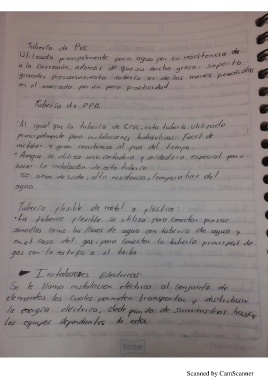 Tubería de Pvc
Utilizada principalmente para agua por su resistencia
a la corrosión, además de que su ancho grosor soporta
grandes presiones tubería es de las menos
en el mercado por su practicidad
Tubería de PPR
Al igual que la tubería de CPVC, esta tubería utilizada
principalmente para instalaciones hidráulicas. Facil de
instalar y gran resistencia al paso del tiempo.
Aunque se utiliza una cortadora y soldadora especial para
hacer la instalación de este tubería
50 años de vida, alta resistencia, temperatura del
agua.
Tubería flexible de metal o plástico:
La tubería flexible se utiliza para conectar
sencillas como las llaves de agua con tubería de agua y
en el caso del gas, para conectar la tubería principal de
gas con la estufa o el boiler
Instalaciones Electricas.
Se le llama instalación eléctrica al conjunto de
elementos los cuales permiten transportar y distribuir
la energía eléctrica, desde punto de suministros hasta
los equipos dependientes de esta.
Scanned by CamScanner